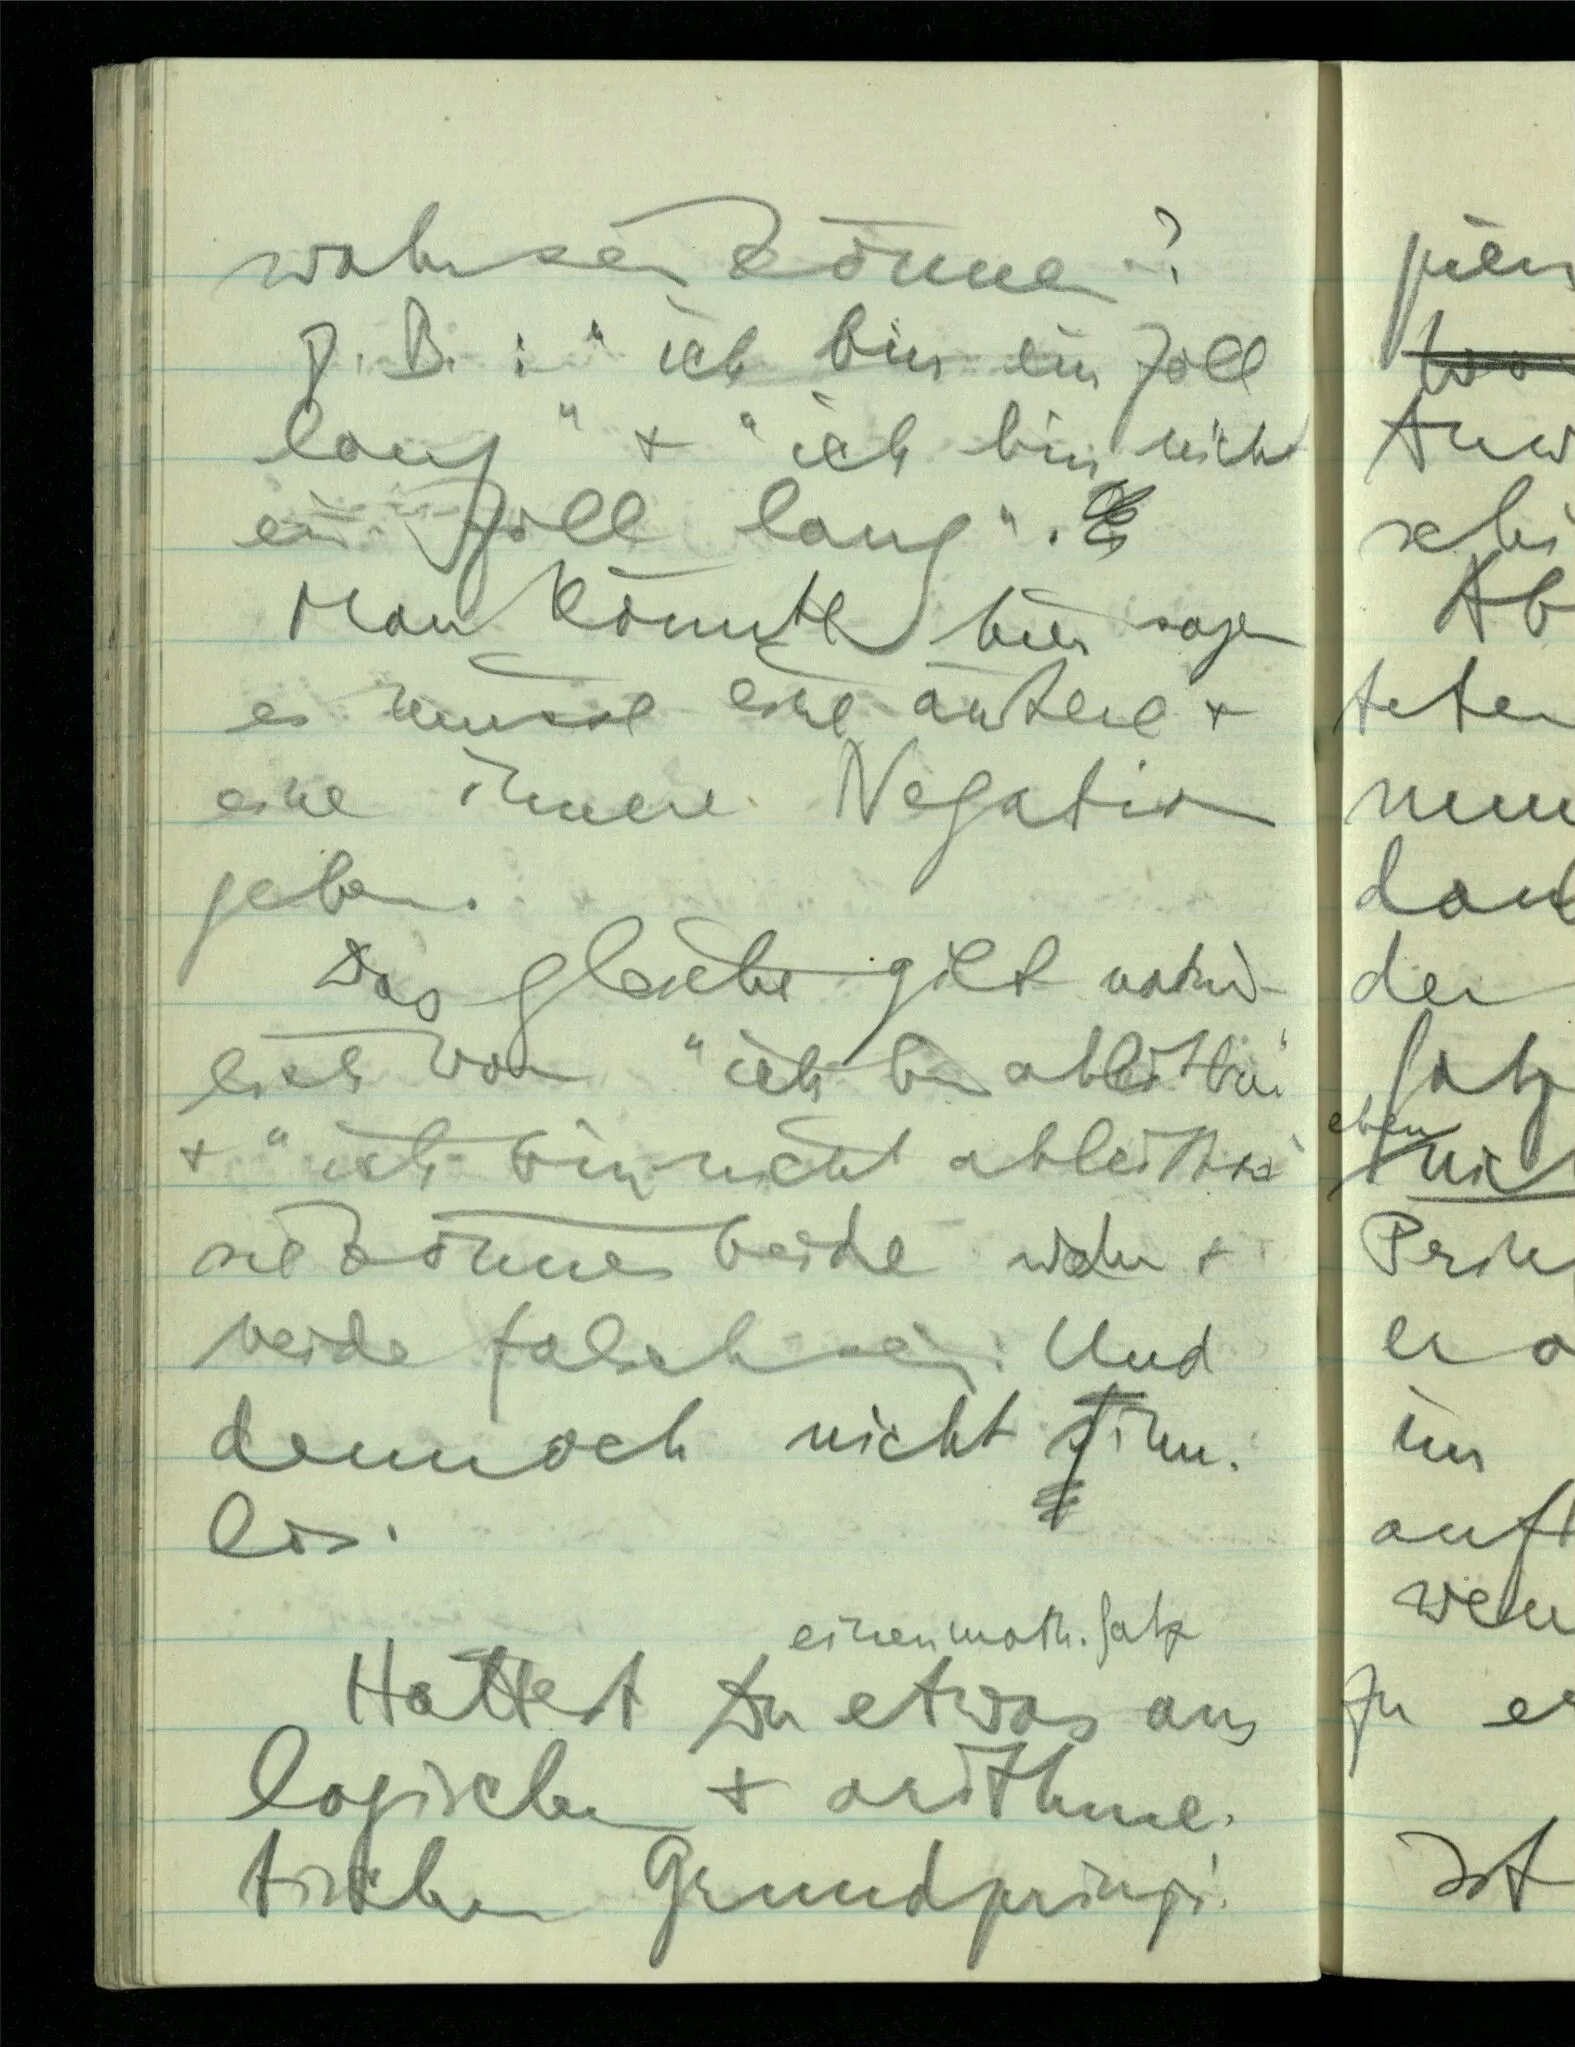 wahr sein können?
Z. B.: "ich bin ein Zoll
lang" + "ich bin nicht
ein Zoll lang".
Man könnte hier sagen
es müsse eine äußere +
eine innere Negation
geben.
Das gleiche gilt natür-
lich von "ich bin ableitbar"
+ "ich bin nicht ableitbar"
sie können beide wahr +
beide falsch sein. Und
dennoch nicht sinn-
los.
einen math. Satz
Hättest Du etwas aus
logischen + arithme-
tischen Grundprinzi-
eben
Satz
der
er
im
zu
Ist